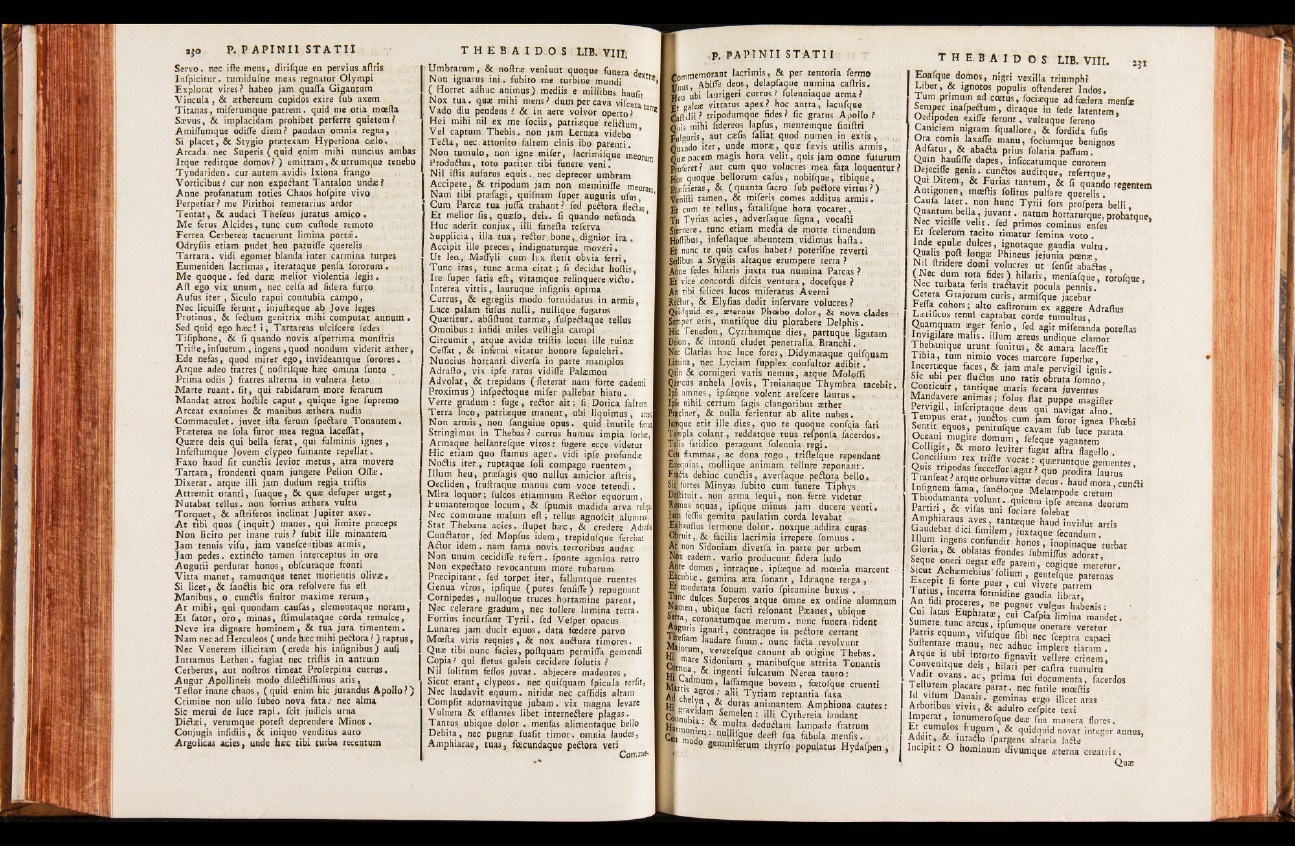 230 P. PAPINII STATII
Servo. nec iste meus, dirisque en pervius astris
Inspicitur. tumidusne meas regnator Olympi
Explorat vires? habeo jam quassa Gigantum
Vincula, & æthereum cupidos exire sub axem
Titanas, miserumque patrem. quid me otia mœsta
Sævus, & implacidam prohibet perferre quietem?
Amissumque odisse diem? pandam omnia regna,
Si placet, & Stygio prætexam Hyperiona cælo.
Arcada nec Superis (quid enim mihi nuncius ambas
Itque reditque domos?) emittam, & utrumque tenebo
Tyndariden. cur autem avidis Ixiona frango
Vorticibus? cur non expectant Tantalon undæ?
Anne profanatum toties Chaos hospite vivo
Perpetiar? me Pirithoi temerarius ardor
Tentat, & audaci Theseus juratus amico.
Me ferus Alcides, tunc cum custode remoto
Ferrea Cerbereæ tacuerunt limina portæ.
Odrysiis etiam pudet heu patuisse querelis
Tartara. vidi egomet blanda inter carmina turpes
Eumeniden lacrimas, iterataque pensa sororum.
Me quoque. sed duræ melior violentia legis.
Ast ego vix unum, nec celsa ad sidera furto
Ausus iter, Siculo rapui connubia campo,
Nec licuisse ferunt, injustæque ab Jove leges
Protinus, & sectum genitrix mihi computat annum.
Sed quid ego hæc! i, Tartareas ulciscere sedes
Tisiphone, & si quando novis asperrima monstris
Triste, insuetum, ingens, quod nondum viderit æther,
Ede nefas, quod mirer ego, invideantque sorores.
Atque adeo fratres (nostrisque hæc omina sunto
Prima odiis) fratres alterna in vulnera læto
Marte ruant. sit, qui rabidarum more ferarum
Mandat atrox hostile caput, quique igne supremo
Arceat exanimes & manibus æthera nudis
Commaculet. juvet ista ferum spectare Tonantem.
Præterea ne sola furor mea regna lacessat,
Quære deis qui bella ferat, qui fulminis ignes,
Infestumque Jovem clypeo fumante repellat.
Faxo haud sit cunctis levior metus, atra movere
Tartara, frondenti quam jungere Pelion Ossæ.
Dixerat. atque illi jam dudum regia tristis
Attremit oranti, suaque, & quæ desuper urget,
Nutabat tellus. non fortius æthera vultu
Torquet, & astriferos inclinat Jupiter axes.
At tibi quos (inquit) manes, qui limite præceps
Non licito per inane ruis? subit ille minantem
Jam tenuis visu, jam vanescentibus armis,
Jam pedes. extincto tamen interceptus in ore
Augurii perdurat honos, obscuraque fronti
Vitta manet, ramumque tenet morientis olivæ.
Si licet, & sanctis hic ora resolvere fas est
Manibus, o cunctis finitor maxime rerum,
At mihi, qui quondam causas, elementaque noram,
Et sator, oro, minas, stimulataque corda remulce,
Neve ira dignare hominem, & tua jura timentem.
Nam nec ad Herculeos (unde hæc mihi pectora?) raptus,
Nec Venerem illicitam (crede his insignibus) ausi
Intramus Lethen. fugiat nec tristis in antrum
Cerberus, aut nostros timeat Proserpina currus.
Augur Apollineis modo dilectissimus aris,
Testor inane chaos, (quid enim hic jurandus Apollo?)
Crimine non ullo subeo nova fata: nec alma
Sic merui de luce rapi. scit judicis urna
Dictæi, verumque potest deprendere Minos.
Conjugis insidiis, & iniquo venditus auro
Argolicas acies, unde hæc tibi turba recentum
THEBAIDOS LIB. VIII.
Umbrarum, & nostræ veniunt quoque funera dextræ,
Non ignarus ini. subito me turbine mundi
(Horret adhuc animus) mediis e millibus hausit
Nox tua. quæ mihi mens? dum per cava viscera terræ
Vado diu pendens? & in aere volvor operto?
Hei mihi nil ex me sociis, patriæque relictum,
Vel captum Thebis. non jam Lernæa videbo
Tecta, nec attonito saltem cinis ibo parenti.
Non tumulo, non igne miser, lacrimisque meorum
Productus, toto pariter tibi funere veni.
Nil istis ausurus equis. nec deprecor umbram
Accipere, & tripodum jam non meminisse meorum,
Nam tibi præsagi, quisnam super auguris usus,
Cum Parcæ tua jussa trahant? sed pectora flectas,
Et melior sis, quæso, deis. si quando nefanda
Huc aderit conjux, illi funesta reserva
Supplicia, illa tua, rector bone, dignior ira.
Accipit ille preces, indignaturque moveri.
Ut leo, Massyli cum lux stetit obvia ferri,
Tunc iras, tunc arma citat; si decidat hostis,
Ire super satis est, vitamque relinquere victo.
Interea vittis, lauruque insignis opima
Currus, & egregiis modo formidatus in armis,
Luce palam fusus nulli, nullique fugatus
Quæritur. absistunt turmæ, suspectaque tellus
Omnibus: infidi miles vestigia campi
Circumit, atque avidæ tristis locus ille ruinæ
Cessat, & inferni vitatur honore sepulchri.
Nuncius hortanti diversa in parte maniplos
Adrasto, vix ipse ratus vidisse Palæmon
Advolat, & trepidans (steterat nam forte cadenti
Proximus) inspectoque miser pallebat hiatu.
Verte gradum: fuge, rector ait; si Dorica saltem
Terra loco, patriæque manent, ubi liquimus, arces
Non armis, non sanguine opus. quid inutile ferrum
Stringimus in Thebas? currus humus impia sorbet,
Armaque bellantesque viros: fugere ecce videtur
Hic etiam quo stamus ager. vidi ipse profundæ
Noctis iter, ruptaque soli compage ruentem,
Illum heu, præsagis quo nullus amicior astris,
Oecliden, frustraque manus cum voce tetendi.
Mira loquor; sulcos etiamnum Rector equorum,
Fumantemque locum, & spumis madida arva reliqui
Nec commune malum est, tellus agnoscit alumnos
Stat Thebana acies. stupet hæc, & credere Adrastus
Cunctatur, sed Mopsus idem, trepidusque ferebat
Actor idem. nam fama novis terroribus audax
Non unum cecidisse refert. sponte agmina retro
Non expectato revocantum more tubarum
Præcipitant. sed torpet iter, falluntque ruentes
Genua viros, ipsique (putes sensisse) repugnant
Cornipedes, nulloque truces hortamine parent,
Nec celerare gradum, nec tollere lumina terra.
Fortius incursant Tyrii. sed Vesper opacus
Lunares jam ducit equos. data fœdere parvo
Mœsta viris requies, & nox auctura timores.
Quæ tibi nunc facies, postquam permissa gemendi
Copia? qui fletus galeis cecidere solutis?
Nil solitum fessos juvat. abjecere madentes,
Sicut erant, clypeos. nec quisquam spicula tersit,
Nec laudavit equum. nitidæ nec cassidis altam
Compsit adornavitque jubam. vix magna levare
Vulnera & efflantes libet internectere plagas.
Tantus ubique dolor. mensas alimentaque bello
Debita, nec pugnæ suasit timor. omnia laudes,
Amphiarae, tuas, fœcundaque pectora veri
Comme-
P. PAPINII STATII
Commemorant lacrimis, & per tentoria sermo
Unus, Abisse deos, delapsaque numina castris.
Heu ubi laurigeri currus? solenniaque arma?
Et galeæ vittatus apex? hoc antra, lacusque
Castalii? tripodumque fides? sic gratus Apollo?
Quis mihi sidereos lapsus, mentemque sinistri
Fulguris, aut cæsis saliat quod numen in extis,
Quando iter, unde moræ, quæ sævis utilis armis,
Quæ pacem magis hora velit, quis jam omne futurum
Proferet? aut cum quo volucres mea fata loquentur?
Hos quoque bellorum casus, nobisque, tibique,
Præscieras, & (quanta sacro sub pectore virtus?)
Venisti tamen, & miseris comes additus armis.
Et cum te tellus, fatalisque hora vocaret,
Tu Tyrias acies, adversaque signa, vocasti
Sternere. tunc etiam media de morte timendum
Hostibus, infestaque abeuntem vidimus hasta.
Et nunc te quis casus habet? poterisne reverti
Sedibus a Stygiis altaque erumpere terra?
Anne sedes hilaris juxta tua numina Parcas?
Et vice concordi discis ventura, docesque?
An tibi felices lucos miseratus Averni
Rector, & Elysias dedit inservare volucres?
Quidquid es, æternus Phœbo dolor, & nova clades
Semper eris, mutisque diu plorabere Delphis.
Hic Tenedon, Cyrrhamque dies, partuque ligatam
Delon, & intonsi cludet penetralia Branchi.
Nec Clarias hac luce fores, Didymæaque quisquam
Limina, nec Lyciam supplex consultor adibit.
Quin & cornigeri vatis nemus, atque Molossi
Quercus anhela Jovis, Troianaque Thymbra tacebit.
Ipsi amnes, ipsæque volent arescere laurus.
Ipse nihil certum sagis clangoribus æther
Præcinet, & nulla ferientur ab alite nubes.
Jamque erit ille dies, quo te quoque conscia fati
Templa colant, reddatque tuus responsa sacerdos.
Talia fatidico peragunt solennia regi.
Ceu flammas, ac dona rogo, tristesque rependant
Exequias, mollique animam tellure reponant.
Fracta dehinc cunctis, aversaque pectora bello.
Sic fortes Minyas subito cum funere Tiphys
Destituit. non arma sequi, non ferre videtur
Remus aquas, ipsique minus jam ducere venti.
Jam fessis gemitu paulatim corda levabat
Exhaustus sermone dolor. noxque addita curas
Obruit, & facilis lacrimis irrepere somnus.
At non Sidoniam diversa in parte per urbem
Nox eadem. vario producunt sidera ludo
Ante domos, intraque. ipsæque ad mœnia marcent
Excubiæ. gemina æra sonant, Idæaque terga,
Et moderata sonum vario spiramine buxus.
Tunc dulces Superos atque omne ex ordine alumnum
Numen, ubique sacri resonant Pæanes, ubique
Serta, coronatumque merum. nunc funera rident
Auguris ignari, contraque in pectore certant
Tiresiam laudare suum. nunc facta revolvunt
Majorum, veteresque canunt ab origine Thebas.
Hi mare Sidonium, manibusque attrita Tonantis
Cornua, & ingenti sulcatum Nerea tauro:
Hi Cadmum, lassamque bovem, fœtosque cruenti
Martis agros: alii Tyriam reptantia saxa
Ad chelyn, & duras animantem Amphiona cautes:
Hi gravidam Semelen: illi Cythereia laudant
Connubia: & multa deductam lampade fratrum
Harmonien: nullisque deest sua fabula mensis.
Ceu modo gemmiferum thyrso populatus Hydaspen,
THEBAIDOS LIB. VIII. 231
Eoasque domos, nigri vexilla triumphi
Liber, & ignotos populis ostenderet Indos.
Tum primum ad cœtus, sociæque ad fœdera mensæ
Semper inaspectum, diraque in sede latentem,
Oedipoden exisse ferunt, vultuque sereno
Caniciem nigram squallore, & sordida fusis
Ora comis laxasse manu, sociumque benignos
Adfatus, & abacta prius solaria passum.
Quin hausisse dapes, insiccatumque cruorem
Dejecisse genis. cunctos auditque, refertque,
Qui Ditem, & Furias tantum, & si quando regentem
Antigonen, mœstis solitus pulsare querelis.
Causa latet. non hunc Tyrii fors prospera belli,
Quantum bella, juvant. natum hortaturque, probatque,
Nec vicisse velit. sed primos cominus enses
Et scelerum tacito rimatur semina voto.
Inde epulæ dulces, ignotaque gaudia vultu.
Qualis post longæ Phineus jejunia pœnæ,
Nil stridere domi volucres ut sensit abactas,
(Nec dum tota fides) hilaris, mensasque, torosque,
Nec turbata feris tractavit pocula pennis.
Cetera Grajorum curis, armisque jacebat
Fessa cohors; alto castrorum ex aggere Adrastus
Lætificos tenui captabat corde tumultus,
Quamquam æger senio, sed agit miseranda potestas
Invigilare malis. illum æreus undique clamor
Thebanique urunt sonitus, & amara lacessit
Tibia, tum nimio voces marcore superbæ,
Incertæque faces, & jam male pervigil ignis.
Sic ubi per fluctus uno ratis obruta somno,
Conticuit, tantique maris secura juventus
Mandavere animas; solus stat puppe magister
Pervigil, inscriptaque deus qui navigat alno.
Tempus erat, junctos cum jam soror ignea Phœbi
Sentit equos, penitusque cavam sub luce parata
Oceani mugire domum, seseque vagantem
Colligit, & moto leviter fugat astra flagello.
Concilium rex triste vocat: quæruntque gementes,
Quis tripodas successor agat? quo prodita laurus
Transeat? atque orbum vittæ decus. haud mora, cuncti
Insignem fama, sanctoque Melampode cretum
Thiodamanta volunt. quicum ipse arcana deorum
Partiri, & visas uni sociare solebat
Amphiaraus aves, tantæque haud invidus artis
Gaudebat dici similem, juxtaque secundum.
Illum ingens confundit honos, inopinaque turbat
Gloria, & oblatas frondes submissus adorat,
Seque oneri negat esse parem, cogique meretur.
Sicut Achæmenius solium, gentesque paternas
Excepit si forte puer, cui vivere patrem
Tutius, incerta formidine gaudia librat,
An fidi proceres, ne pugnet vulgus habenis:
Cui latus Euphratæ, cui Caspia limina mandet.
Sumere tunc arcus, ipsumque onerare veretur
Patris equum, visusque sibi nec sceptra capaci
Sustentare manu, nec adhuc implere tiaram.
Atque is ubi intorto signavit vellere crinem,
Convenitque deis, hilari per castra tumultu
Vadit ovans. ac, prima sui documenta, sacerdos
Tellurem placare parat. nec futile mœstis
Id visum Danais. geminas ergo ilicet aras
Arboribus vivis, & adulto cespite texi
Imperat, innumerosque deæ sua munera flores.
Et cumulos frugum, & quidquid novat integer annus,
Addit, & intacto spargens altaria lacte
Incipit: O hominum divumque æterna creatrix,
Quæ